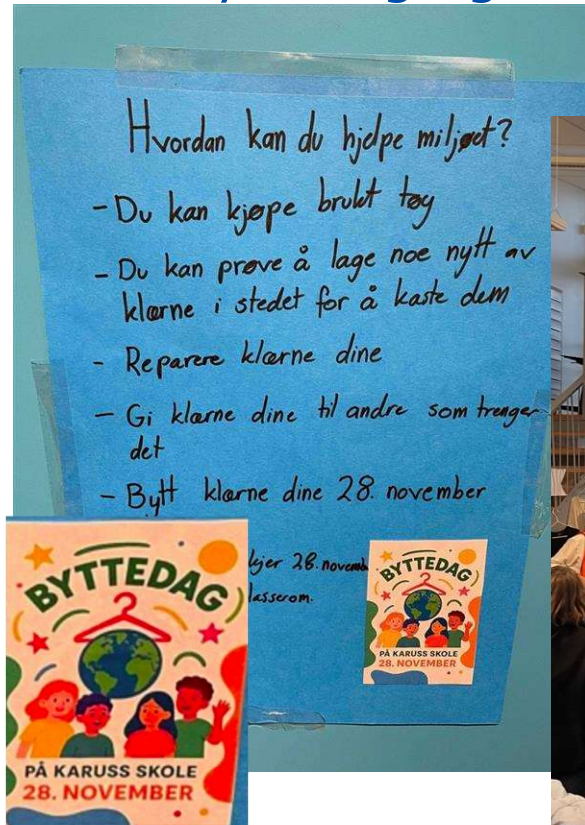 Hvordan kan du hjelpe miljøet?
- Du kan kjøpe brukt tøy
- Du kan prøve å lage noe nytt av
klærne i stedet for å kaste dem
- Reparere klærne dine
- Gi klærne dine til andre som trenger
det
- Bytt klærne dine 28. november
28. november
BYTTEDAG
PÅ KARUSS SKOLE
28. NOVEMBER
BYTTEDAG
PÅ KARUSS SKOLE
28. NOVEMBER